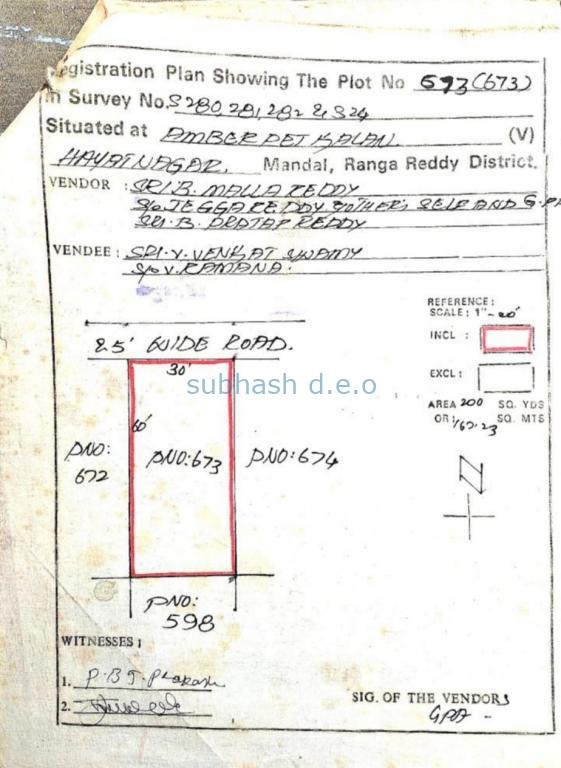 Registration Plan Showing The Plot No 673 (673)
in Survey No. S 280, 281, 282 & 324
Situated at AMBERPET KALAN. (V)
HAYATNAGAR, Mandal, Ranga Reddy District.
VENDOR : SRI. B. MALLA REDDY
S/o JEGGA REDDY SELF AND G.P.
SRI. B. PRATAP REDDY
VENDEE : SRI. V. VENKAT SWAMY
S/o V. RAMANA.
REFERENCE :
SCALE : 1" -
INCL :
EXCL :
AREA 200 SQ. YDS
OR: 167.23 SQ. MTS
N
25' WIDE ROAD.
30'
subhash d.e.o
60'
PNO: 672
PNO: 673
PNO: 674
PNO: 598
WITNESSES :
1.
2.
SIG. OF THE VENDORS
GPA -